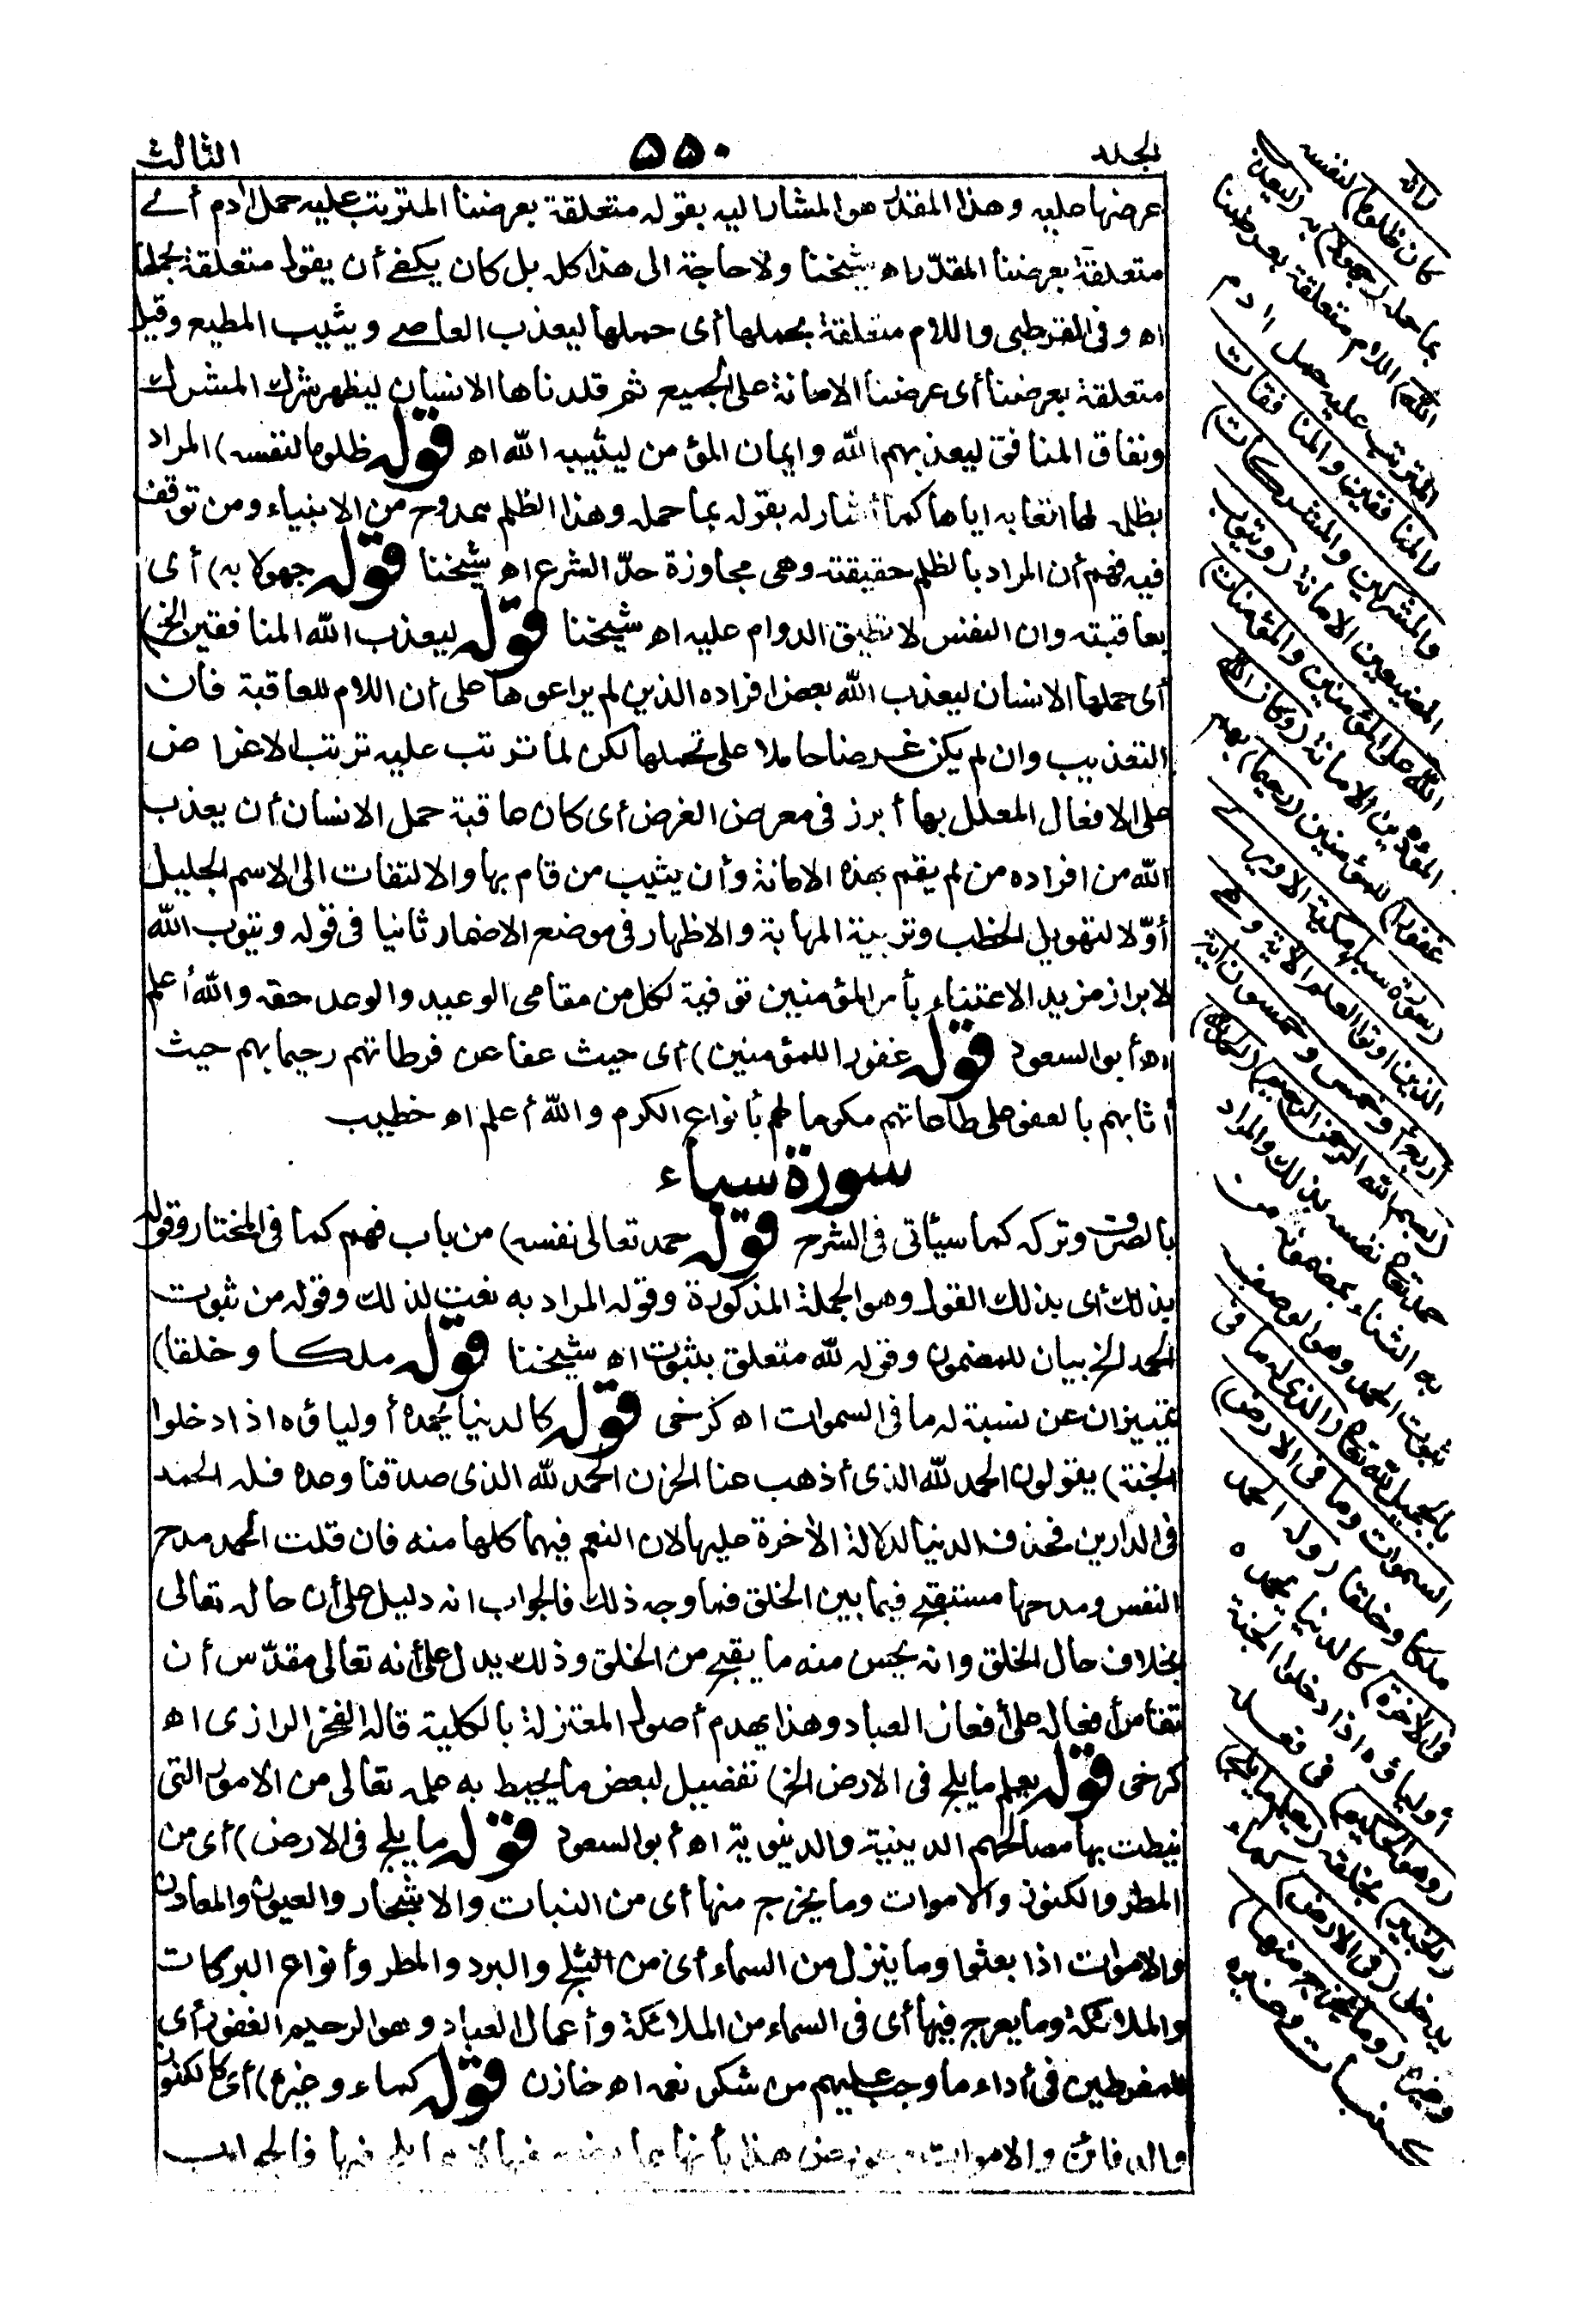 المجلد ٥٥٠ الثالث
عرضها عليه وهذا المقدر هو المشار اليه بقوله متعلقة بعرضنا المترتب عليه حمل ادم أى
متعلقة بعرضنا المقدّر اه شيخنا ولا حاجة الى هذا كله بل كان يكفى أن يقول متعلقة بحملها
اه وفى القرطبى واللام متعلقة بحملها أى حملها ليعذب العاصى ويثيب المطيع وقيل
متعلقة بعرضنا أى عرضنا الامانة على الجميع ثم قلدناها الانسان ليظهر شرك المشرك
ونفاق المنافق ليعذبهم الله وايمان المؤمن ليثيبه الله اه قوله ظلوما لنفسه) المراد
بظلمه لها اتعابه اياها كما أشار له بقوله بما حمله وهذا الظلم ممدوح من الانبياء ومن توقف
فيه فهم أن المراد بالظلم حقيقته وهى مجاوزة حدّ الشرع اه شيخنا قوله جهولا به) أى
بعاقبته وان النفس لا تطيق الدوام عليه اه شيخنا قوله ليعذب الله المنافقين الخ)
أى حملها الانسان ليعذب الله بعض افراده الذين لم يراعوها على أن اللام للعاقبة فان
التعذيب وان لم يكن غرضا حاملا على تحملها لكن لما ترتب عليه ترتب الاغراض
على الافعال المعلل بها أبرز فى معرض الغرض أى كان عاقبة حمل الانسان أن يعذب
الله من افراده من لم يقم بهذه الامانة وأن يثيب من قام بها والالتفات الى الاسم الجليل
أوّلا لتهويل الخطب وتربية المهابة والاظهار فى موضع الاضمار ثانيا فى قوله ويتوب الله
لابراز مزيد الاعتناء بأمر المؤمنين توفية لكل من مقامى الوعيد والوعد حقه والله أعلم
اه أبو السعود قوله غفورا للمؤمنين) أى حيث عفا عن فرطاتهم رحيما بهم حيث
أثابهم بالعفو على طاعاتهم مكرما لهم بأنواع الكرم والله أعلم اه خطيب
سورة سباء
بالصرف وتركه كما سيأتى فى الشرح قوله حمد تعالى نفسه) من باب فهم كما فى المختار وقوله
بذلك أى بذلك القول وهو الجملة المذكورة وقوله المراد به نعت لذلك وقوله من ثبوت
الحمد الخ بيان للمضمون وقوله لله متعلق بثبوت اه شيخنا قوله ملكا وخلقا)
تمييزان عن نسبة له ما فى السموات اه كرخى قوله كالدنيا يحمده أولياؤه اذا دخلوا
الجنة) يقولون الحمد لله الذى أذهب عنا الحزن الحمد لله الذى صدقنا وعده فله الحمد
فى الدارين فحذف الدنيا لدلالة الأخرة عليها لان النعم فيهما كلها منه فان قلت الحمد مدح
النفس ومدحها مستقبح فيما بين الخلق فما وجه ذلك فالجواب انه دليل على أن حاله تعالى
بخلاف حال الخلق وانه يحسن منه ما يقبح من الخلق وذلك يدل على أنه تعالى مقدّس أن
تقاس أفعاله على أفعال العباد وهذا يهدم أصول المعتزلة بالكلية قاله الفخر الرازى اه
كرخى قوله يعلم ما يلج فى الارض الخ) تفصيل لبعض ما يحيط به علمه تعالى من الامور التى
نيطت بها مصالحهم الدينية والدنيوية اه أبو السعود قوله ما يلج فى الارض) أى من
المطر والكنوز والاموات وما يخرج منها أى من النبات والاشجار والعيون والمعادن
والاموات اذا بعثوا وما ينزل من السماء أى من الثلج والبرد والمطر وأنواع البركات
والملائكة وما يعرج فيها أى فى السماء من الملائكة وأعمال العباد وهو الرحيم الغفور أى
للمفرطين فى أداء ما وجب عليهم من شكر نعمه اه خازن قوله كماء وغيره) أى كالكنوز
والدفائن والاموات
(انه
كان ظلوما) لنفسه
بما حمله (جهولا) به (ليعذب
الله) اللام متعلقة بعرضنا
المترتب عليه حمل ادم
(المنافقين والمنافقات
والمشركين والمشركات)
المضيعين الامانة (ويتوب
الله على المؤمنين والمؤمنات)
المؤدين الامانة (وكان الله
غفورا) للمؤمنين (رحيما) بهم
(سورة سبا مكية الا ويرى
الذين اوتوا العلم الأية وهى
اربع أو خمس وخمسون أية)
(بسم الله الرحمن الرحيم) (الحمد لله)
حمد تعالى نفسه بذلك والمراد
به الثناء بمضمونه من
ثبوت الحمد وهو الوصف
بالجميل لله تعالى (الذى له ما فى
السموات وما فى الارض)
ملكا وخلقا (وله الحمد
فى الأخرة) كالدنيا يحمده
أولياؤه اذا دخلوا الجنة
(وهو الحكيم) فى فعله
(الخبير) بخلقه (يعلم ما يلج)
يدخل (فى الارض) كماء
وغيره (وما يخرج منها)
كنبات وغيره